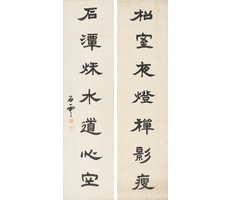 松室夜燈禪影瘦
石潭秋水道心空
石雲